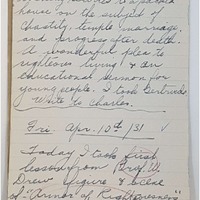 house on the subject of
chastity, temple marriage,
and progress after death.
A wonderful plea to
righteous living & an
educational sermon for
young people. I took Gertrude
White to Charles.
Fri. Apr. 10th /31
Today I took first
lesson from
Drew figure & scene
of "Armor of Righteousness"